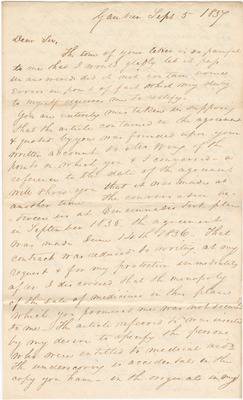 Sept 5 1837
Dear Sir,
The tone of your letter is so painful
to me that I would gladly let it pass
unanswered did it not contain some
errors in point of fact which my duty
to myself requires me to rectify.
You are entirely mistaken in supposing
that the article contained in the agreement
& quoted by you was founded upon your
written account or
points on which you & I conversed in
reference to the date of the agreement
will show you that it was made at
another time. The conversation
between us at took place
in September 1835 the agreement
was made June 14th 1836. That
contract was reduced to writing at my
request & for my protection immediately
after I discovered that the monopoly
of the sale of medicines in this place
which you promised me was not secured
to me. The article referred to was inserted
by my desire to specify the persons
who were entitled to medical aid.
The underscoring is accidental in the
copy you have in the originals in my